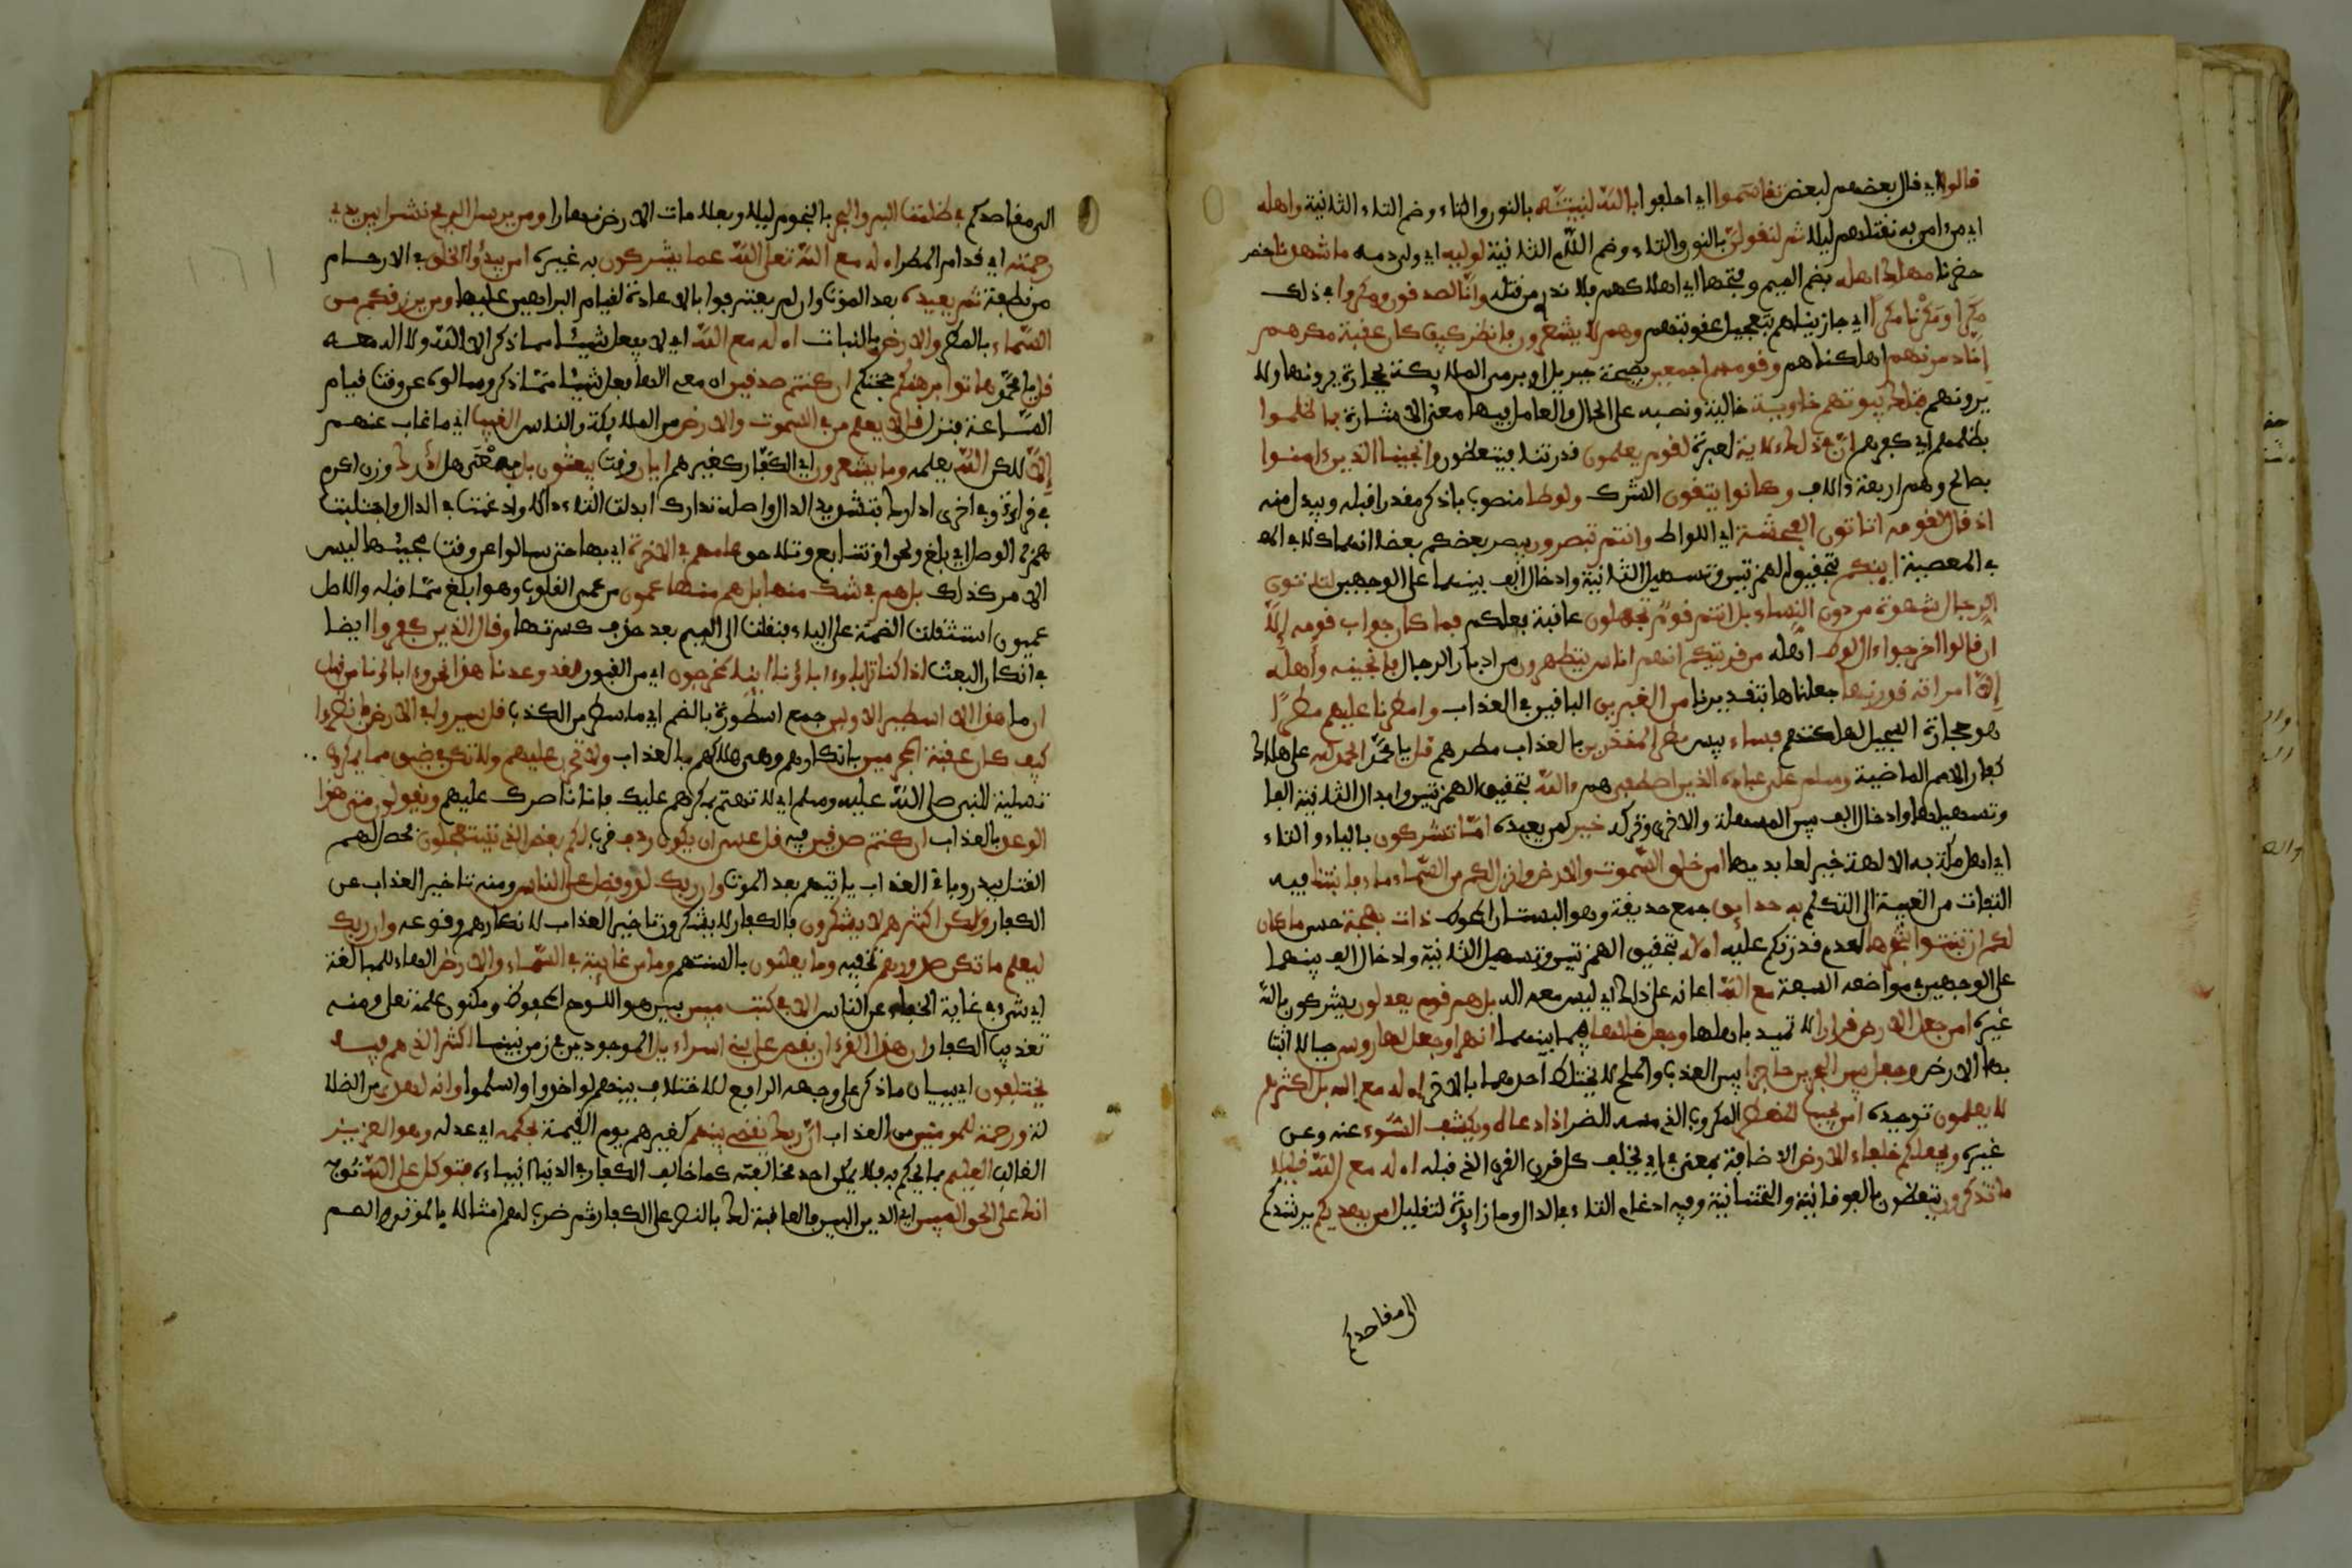 قالوا اي قال بعضهم لبعض تقاسموا اي احلفوا بالله لنبيتنه بالنون والتاء وضم التاء الثانية واهله
اي من امن به نقتلهم ليلا ثم لنقولن بالنون والتاء وضم اللام الثانية لوليه اي ولي دمه ما شهدنا حضر
حضرنا مهلك اهله بضم الميم وفتحها اي اهلاكهم فلا ندري من قتله وانا لصدقون ومكروا في ذلك
مكرا ومكرنا مكرا اي جازيناهم بتعجيل عقوبتهم وهم لا يشعرون فانظر كيف كان عقبة مكرهم
انا دمرنهم اهلكناهم وقومهم اجمعين بصيحة جبريل او برمي الملايكة بحجارة يرونها ولا
يرونهم فتلك بيوتهم خاوية خالية ونصبه على الحال والعامل فيها معنى الاشارة بما ظلموا
بظلمهم اي كفرهم ان في ذلك لاية لعبرة لقوم يعلمون قدرتنا فيتعظون وانجينا الذين ءامنوا
بصالح وهم اربعة ءالاف وكانوا يتقون الشرك ولوطا منصوب باذكر مقدرا قبله ويبدل منه
اذ قال لقومه اتاتون الفحشة اي اللواط وانتم تبصرون يبصر بعضكم بعضا انهماكا في الم
في المعصية اينكم بتحقيق الهمزتين وتسهيل الثانية وادخال الف بينهما على الوجهين لتاتون
الرجال شهوة من دون النساء بل انتم قوم تجهلون عاقبة فعلكم فما كان جواب قومه الا
ان قالوا اخرجوا ءال لوط اهله من قريتكم انهم اناس يتطهرون من ادبار الرجال فانجينه واهله
الا امراته قدرنها جعلناها بتقديرنا من الغبرين الباقين في العذاب وامطرنا عليهم مطرا
هو حجارة السجيل اهلكتهم فساء بيس مطر المنذرين بالعذاب مطرهم قل يا محمد الحمد لله على هلاك
كفار الامم الماضية وسلم على عباده الذين اصطفى هم ءالله بتحقيق الهمزتين وابدال الثانية الفا
وتسهيلها وادخال الف بين المسهلة والاخرى وتركه خير لمن يعبده اما تشركون بالياء والتاء
اي اهل مكة به الالهة خير لعابديها امن خلق السموت والارض وانزل لكم من السماء ماء فانبتنا فيه
التفات من الغيبة الى التكلم به حدايق جمع حديقة وهو البستان المحوط ذات بهجة حسن ما كان
لكم ان تنبتوا شجرها لعدم قدرتكم عليه اءله بتحقيق الهمزتين وتسهيل الثانية وادخال الف بينهما
على الوجهين في مواضعه السبعة مع الله اعانه على ذلك اي ليس معه اله بل هم قوم يعدلون يشركون بالله
غيره امن جعل الارض قرارا لا تميد باهلها وجعل خللها فيما بينهما انهرا وجعل لها روسي جبالا اثبت
بها الارض وجعل بين البحرين حاجزا بين العذب والملح لا يختلط احدهما بالاخر اءله مع الله بل اكثرهم
لا يعلمون توحيده امن يجيب المضطر المكروب الذي مسه الضر اذا دعاه ويكشف السوء عنه وعن
غيره ويجعلكم خلفاء الارض الاضافة بمعنى في اي يخلف كل قرن القرن الذي قبله اءله مع الله قليلا
ما تذكرون يتعظون بالفوقانية والتحتانية وفيه ادغام التاء في الدال وما زايدة لتقليل امن يهديكم يرشدكم
الى مقاصدكم
الى مقاصدكم في ظلمت البر والبحر بالنجوم ليلا وبعلامات الارض نهارا ومن يرسل الريح نشرا بين يدي
رحمته اي قدام المطر اءله مع الله تعلى الله عما يشركون به غيره امن يبدؤا الخلق في الارحام
من نطفة ثم يعيده بعد الموت وان لم يعترفوا بالاعادة لقيام البراهين عليها ومن يرزقكم من
السماء بالمطر والارض بالنبات اءله مع الله اي لا يفعل شيئا مما ذكر الا الله ولا اله معه
قل يا محمد هاتوا برهنكم حجتكم ان كنتم صدقين ان معي الها فعل شيئا مما ذكر وسالوه عن وقت قيام
الساعة فنزل قل لا يعلم من في السموت والارض من الملايكة والناس الغيب اي ما غاب عنهم
الا لكن الله يعلمه وما يشعرون اي الكفار كغيرهم ايان وقت يبعثون بل بمعنى هل ادرك وزن اكرم
في قراءة وفي اخرى ادارك بتشديد الدال واصله تدارك ابدلت التاء دالا وادغمت في الدال واجتلبت
همزة الوصل اي بلغ ولحق او تتابع وتلاحق علمهم في الاخرة اي بها حتى سالوا عن وقت مجيئها ليس
الامر كذلك بل هم في شك منها بل هم منها عمون من عمى القلب وهو ابلغ مما قبله والاصل
عميون استثقلت الضمة على الياء فنقلت الى الميم بعد حذف كسرتها وقال الذين كفروا ايضا
في انكار البعث اذا كنا ترابا وءاباؤنا اينا لمخرجون اي من القبور لقد وعدنا هذا نحن وءاباؤنا من قبل
ان ما هذا الا اسطير الاولين جمع اسطورة بالضم اي ما سطر من الكذب قل سيروا في الارض فانظروا
كيف كان عقبة المجرمين بانكارهم وهي هلاكهم بالعذاب ولا تحزن عليهم ولا تكن في ضيق مما يمكرون
تسلية للنبي صلى الله عليه وسلم اي لا تهتم بمكرهم عليك فانا ناصرك عليهم ويقولون متى هذا
الوعد بالعذاب ان كنتم صدقين فيه قل عسى ان يكون ردف قرب لكم بعض الذي تستعجلون فحصل لهم
القتل ببدر وباقي العذاب ياتيهم بعد الموت وان ربك لذو فضل على الناس ومنه تاخير العذاب عن
الكفار ولكن اكثرهم لا يشكرون فالكفار لا يشكرون تاخير العذاب لانكارهم وقوعه وان ربك
ليعلم ما تكن صدورهم تخفيه وما يعلنون بالسنتهم وما من غايبة في السماء والارض الهاء للمبالغة
اي شيء في غاية الخفاء عن الناس الا في كتب مبين بين هو اللوح المحفوظ ومكنون علمه تعلى ومنه
تعذيب الكفار ان هذا القرءان يقص على بني اسراءيل الموجودين في زمن نبينا اكثر الذي هم فيه
يختلفون اي ببيان ما ذكر على وجهه الرافع للاختلاف بينهم لو اخذوا واسلموا وانه لهدى من الضلا
لة ورحمة للمومنين من العذاب ان ربك يقضي بينهم كغيرهم يوم القيمة بحكمه اي عدله وهو العزيز
الغالب العليم بما يحكم به فلا يمكن احد مخالفته كما خالف الكفار في الدنيا انبياءه فتوكل على الله ثق به
انك على الحق المبين اي الدين البين فالعاقبة لك بالنصر على الكفار ثم ضرب لهم امثالا بالموتى والصم